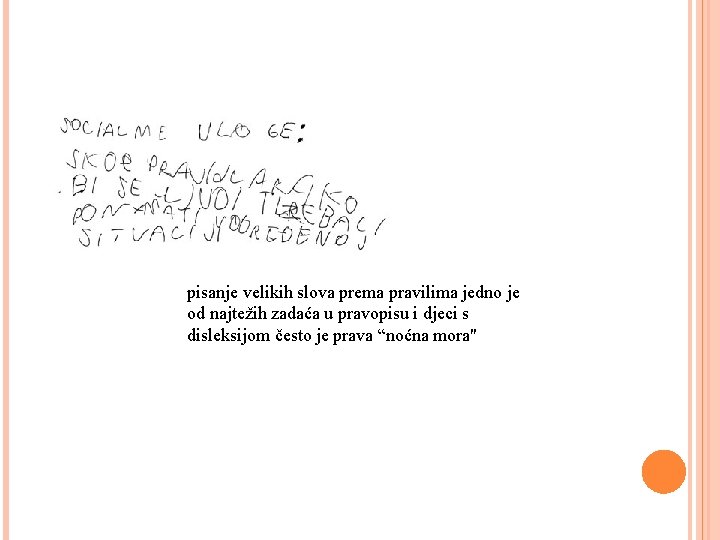 SOCIALME ULO GE:
SKOP PRAVIL
BI SE LJUDI
PONAŠATI
SITUACIJI
pisanje velikih slova prema pravilima jedno je
od najtežih zadaća u pravopisu i djeci s
disleksijom često je prava “noćna mora"